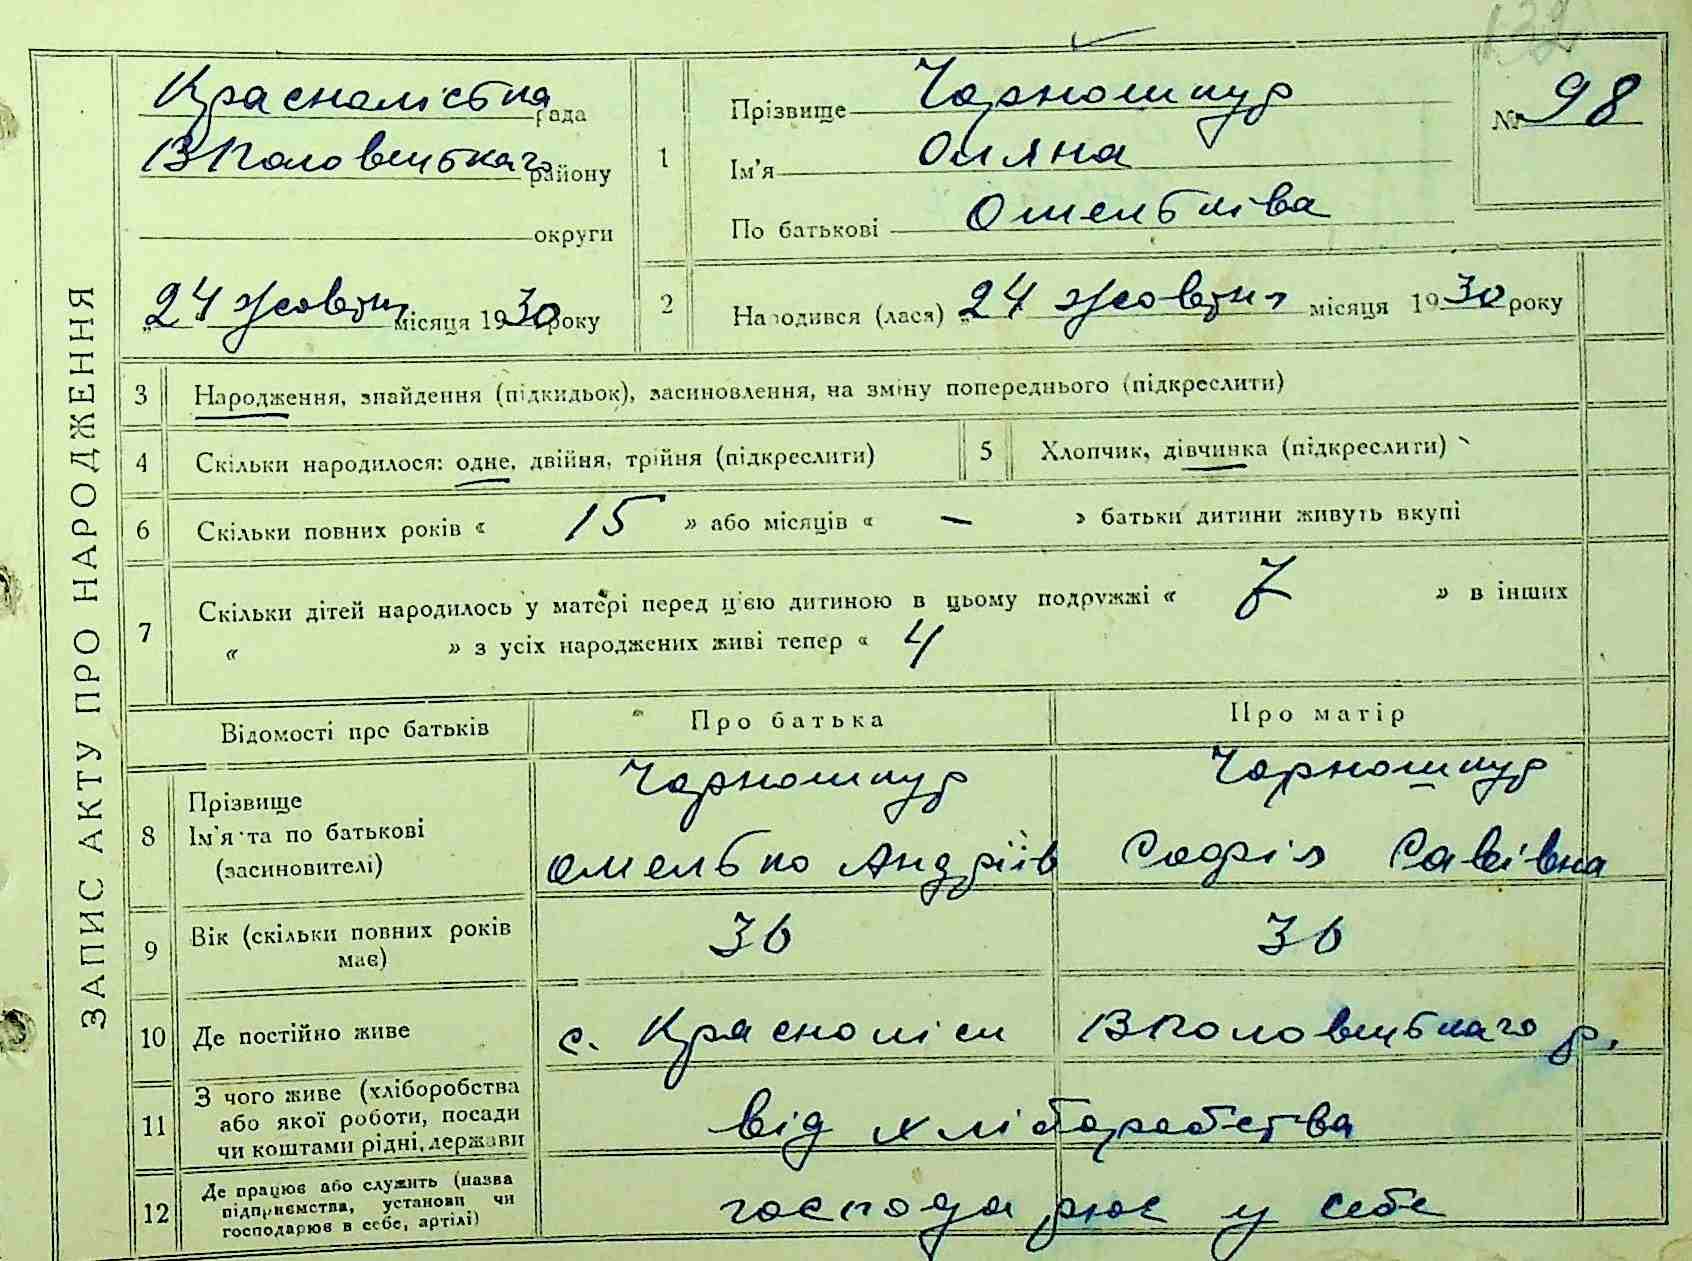 132
ЗАПИС АКТУ ПРО НАРОДЖЕННЯ
Краснолістка рада
ВПоловецького району
округи
„24 жовтня місяця 1930 року
1
Прізвище Чорношкур
Ім'я Оляна
По батькові Омелькова
№ 98
2
Народився (лася) „24 жовтня місяця 1930 року
3 Народження, знайдення (підкидьок), засиновлення, на зміну попереднього (підкреслити)
4 Скільки народилося: одне, двійня, трійня (підкреслити)
5 Хлопчик, дівчинка (підкреслити)
6 Скільки повних років « 15 » або місяців « – » батьки дитини живуть вкупі
7 Скільки дітей народилось у матері перед цією дитиною в цьому подружжі « 7 » в інших
« » з усіх народжених живі тепер « 4
Відомості про батьків
Про батька
Про матір
8 Прізвище
Ім'я та по батькові
(засиновителі)
Чорношкур
Омелько Андріїв
Чорношкур
Софія Савівна
9 Вік (скільки повних років
має)
36
36
10 Де постійно живе
с. Красноліси ВПоловецького р.
11 З чого живе (хліборобства
або якої роботи, посади
чи коштами рідні, держави
від хліборобства
12 Де працює або служить (назва
підприємства, установи чи
господарює в себе, артілі)
господарює у себе